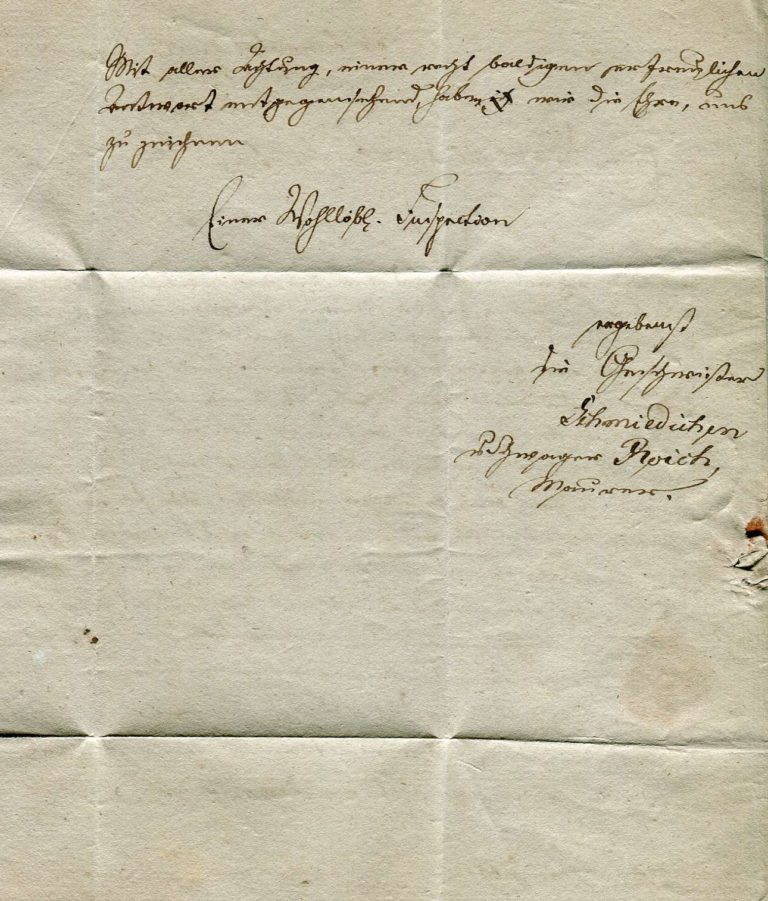 Mit aller Achtung, einer recht baldigen erfreulichen
Antwort entgegensehend, haben wir die Ehre, uns
zu zeichnen
Einer Wohllöbl. Inspection
ergebenst
die Geschwister
Schmiedichen
u Schwager Roich,
Maurer.